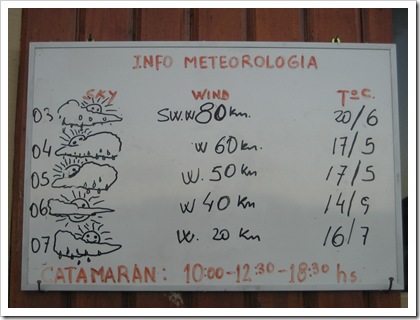 INFO METEOROLOGIA
SKY WIND TºC.
03 SW.W 80 Km. 20/6
04 W 60 Km. 17/5
05 W. 50 Km. 17/5
06 W 40 Km 14/9
07 W. 20 Km 16/7
CATAMARAN: 10:00-12:30-18:30 hs.